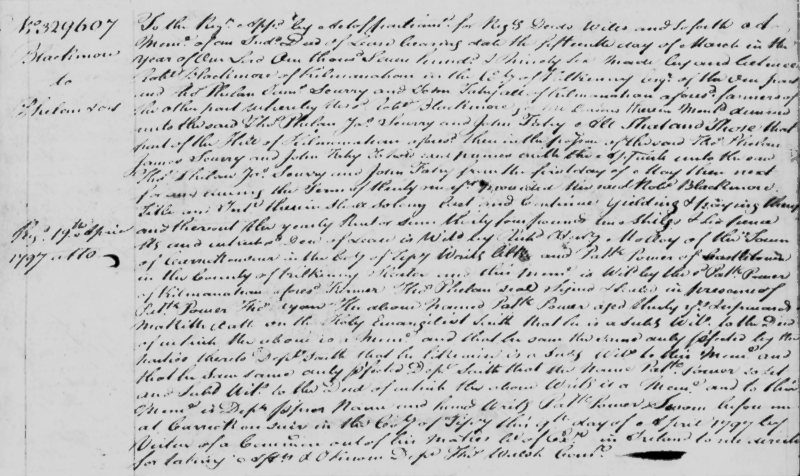 No. 329607
Blackimore
to
Phelan & ors
Regd. 19th April
1797 at 10
To the Regr. appd. by Act of Parliamt. for Regg. Deeds Wills and so forth a
Meml. of an Indre. Deed of Lease bearing date the fifteenth day of March in the
year of Our Lord One thous. Seven hund. & Ninety Six Made by and between
Robt. Blackimore of Kilmanahan in the Coty. of Kilkenny Esqr. of the One part
and Thos. Phelan James Sourry and John Fahy all of Kilmanahan aforesd. farmers of
the other part whereby the sd. Robt. Blackimore for the Consns. therein Mentd. demised
unto the said Thos. Phelan Jas. Sourry and John Fahy All That and Those that
part of the of Kilmanahan aforesd. then in the possion. of the said Thos. Phelan
James Sourry and John Fahy To hold said premes. with the appurts. unto the said
Thos. Phelan Jas. Sourry and John Fahy from the first day of May then next
for and during the Term of thirty one yrs. provided his said Robt. Blackimore
Title and Intt. therein shall so long last and Continue yielding & paying thereout
and thereout the yearly Rent or sum thirty four pounds two shillgs. & six pence
Stg. and which sd. Deed of Lease is Witd. by Molloy of the Town
of Carrickonsuir in the Coty. of Tipy. Writg. Clk. and Patk. Power of
in the County of Kilkenny and this Meml. is Witd. by the sd. Patk. Power
of Kilmanahan aforesd. Farmer Thos. Phelan seal Signed & Sealed in presence of
Patk. Power Thos. Lyons The above Named Patk. Power aged thirty yrs. & upwards
maketh Oath on the Holy Evangelist Saith that he is a Subg. Witn. to the Deed
of which the above is a Meml. and that he saw the same duly executed by the
parties thereto Dept. Saith that he likewise is a Subg. Witn. to this Meml. and
that he saw same duly executed Dept. Saith that the Name Patk. Power is set
and Subd. Witn. to the Deed of which the above Writg. is a Meml. and to this
Meml. is Depts. proper Name and hand Writg. Patk. Power Sworn before me
at Carrickonsuir in the Coty. of Tipy. this 17th. day of April 1797 by
Virtue of a Commion. out of his Maties. Ct. of Exr. in Ireland to me directed
for taking Affts. & I know Dept. Thos. Walsh Comr.